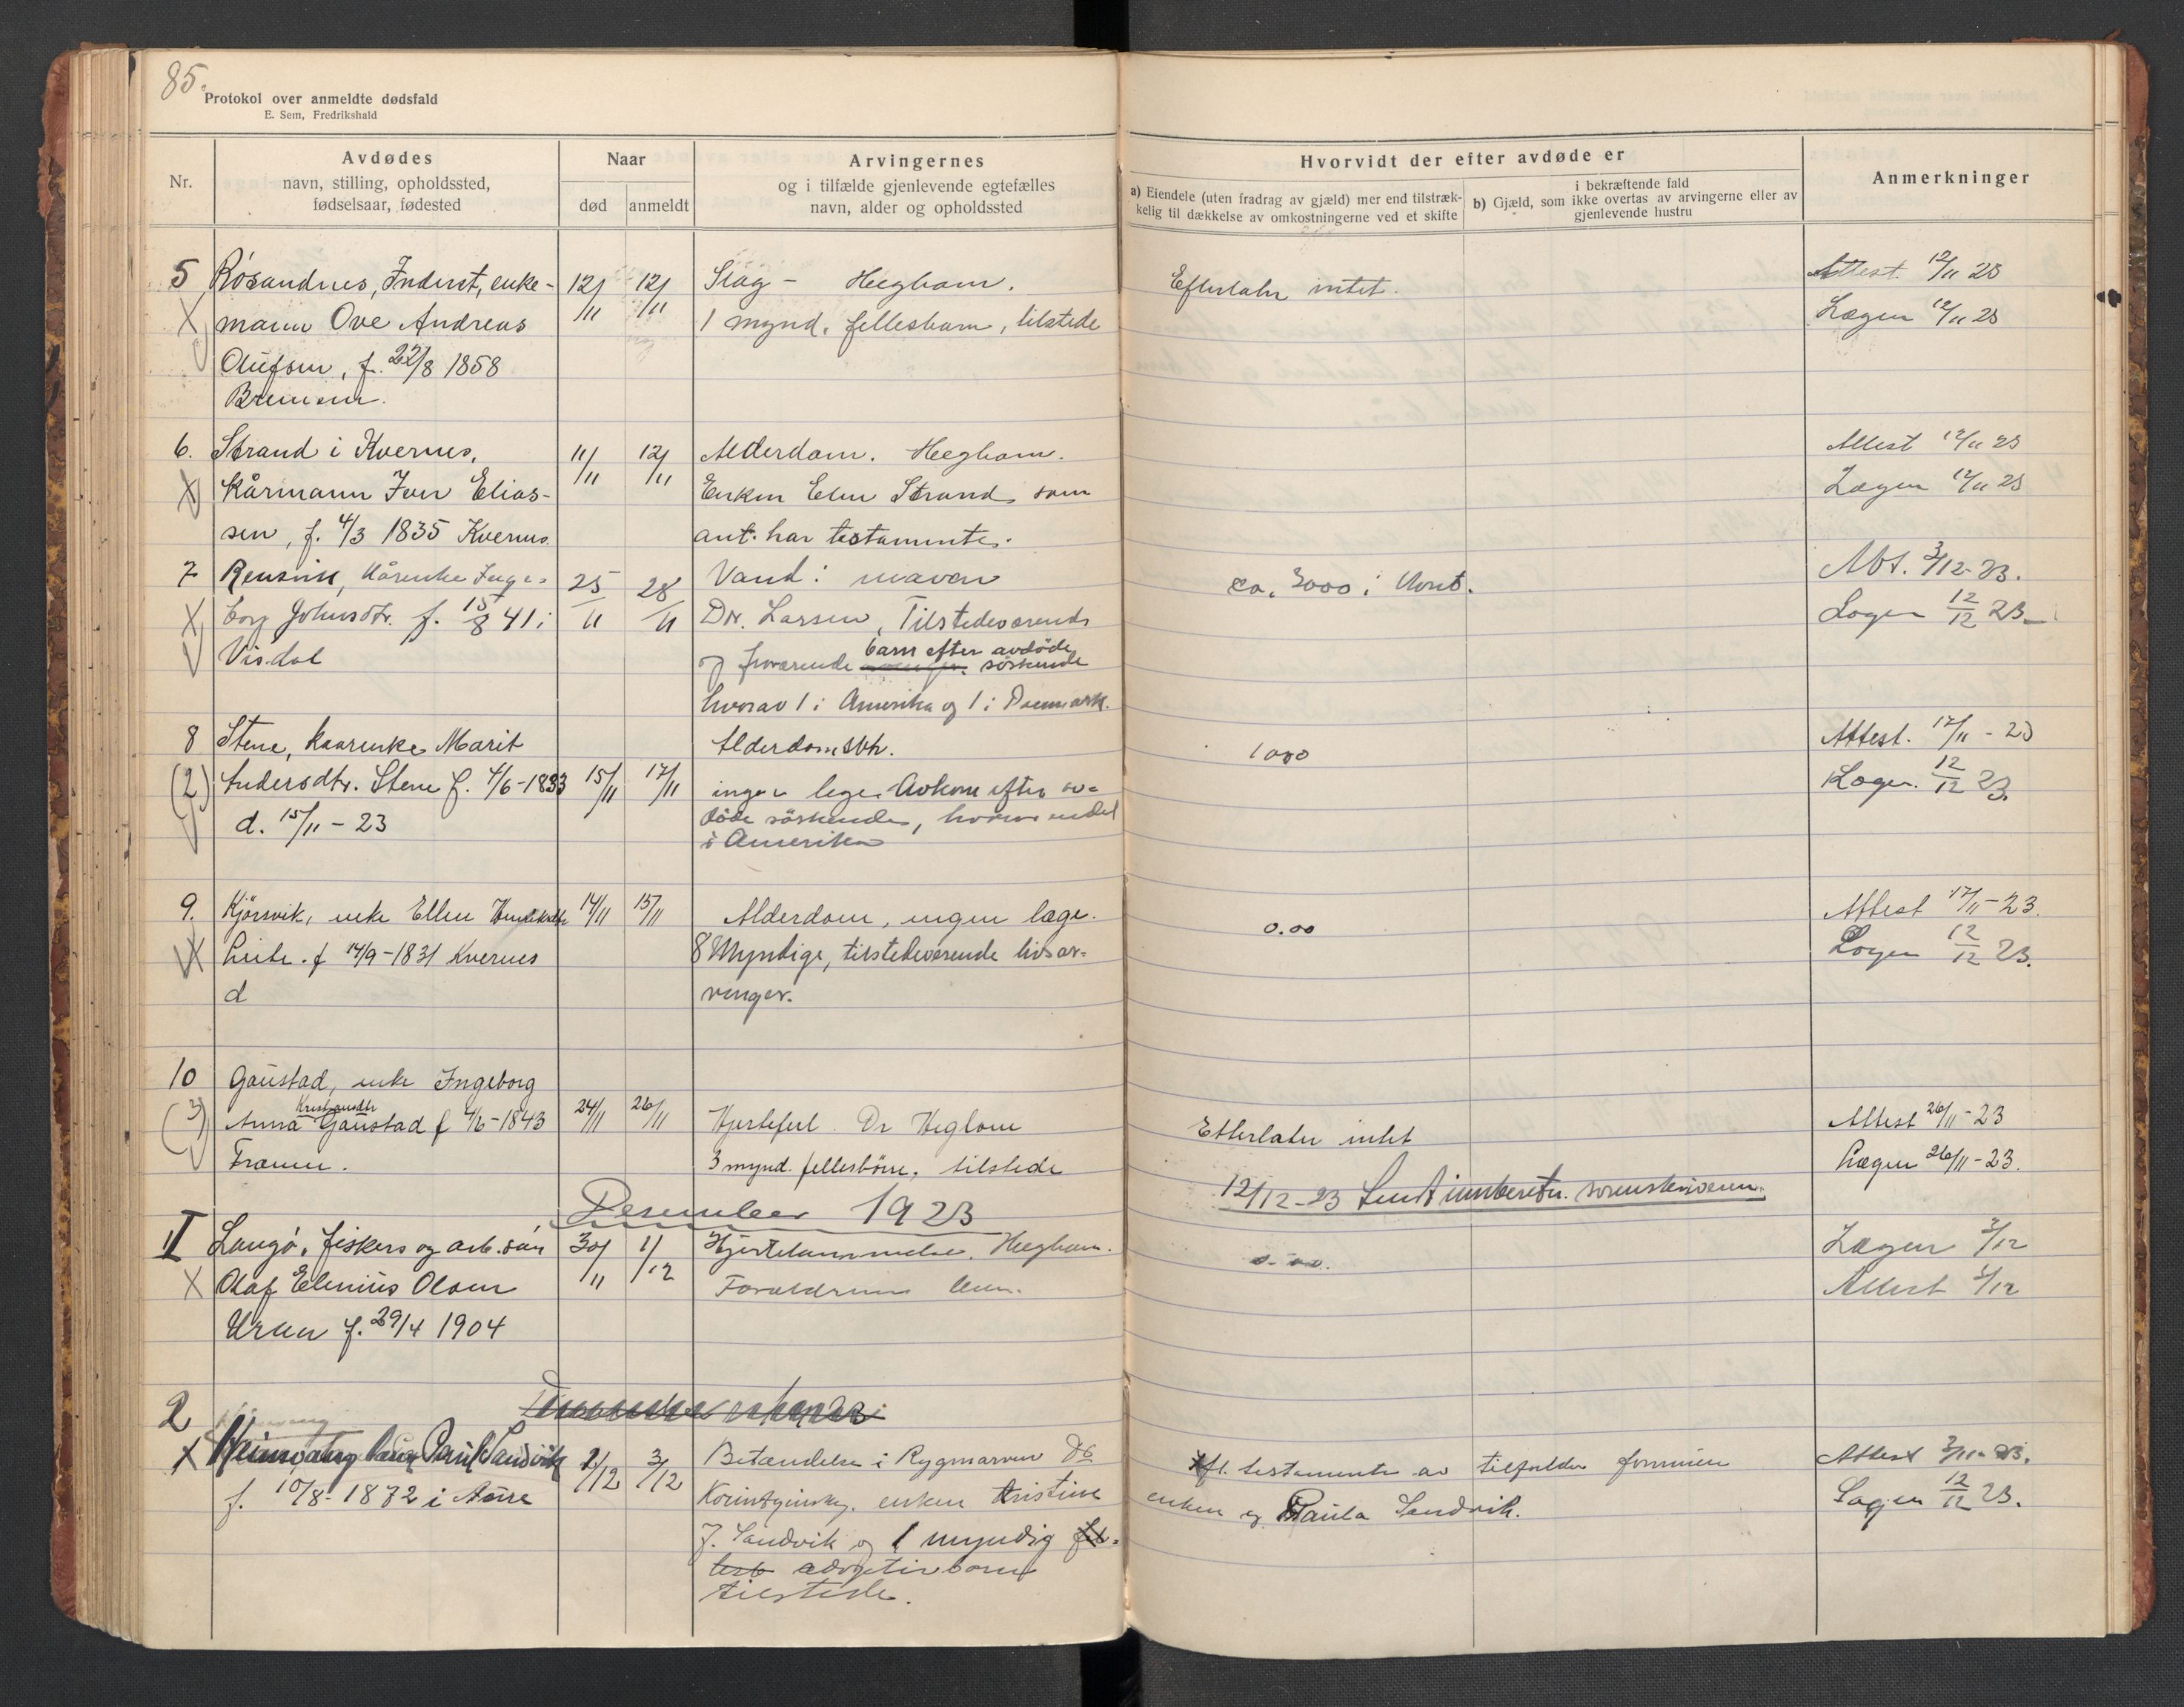 85.
Protokol over anmeldte dødsfald
E. Sem, Fredrikshald
Nr.
Avdødes
navn, stilling, opholdssted,
fødselsaar, fødested
Naar
død
anmeldt
Arvingernes
og i tilfælde gjenlevende egtefælles
navn, alder og opholdssted
Hvorvidt der efter avdøde er
a) Eiendele (uten fradrag av gjæld) mer end tilstræk-
kelig til dækkelse av omkostningerne ved et skifte
i bekræftende fald
b) Gjæld, som ikke overtas av arvingerne eller av
gjenlevende hustru
Anmerkninger
5 Rosandnes, Inderst, enke- 12/11 12/11 Slag - Heghom. Efterlater intet. Attest 12/11 23
X mann Ove Andreas 1 mynd. fellesbarn, tilstede Lægen 12/11 23
Olufsen, f. 22/8 1858
Bremsnes.
6. Strand i Kvernes, 11/11 12/11 Alderdom. Heghom. Attest 12/11 23
X kårmann Iver Elias- Enken Elen Strand som Lægen 12/11 23
sen, f. 4/3 1835 Kvernes ant. har testamente.
7 Rensvik, kårenke Inge- 25/11 28/11 Vand i maven ca. 3000 i Att. 3/12-23.
X borg Johnsdtr. f. 15/8 41 i Dr. Larsen, Tilstedeværende Lægen 12/12 23
Visdal og fraværende barn efter avdøde søskende
hvorav 1 i Amerika og 1 i Danmark.
8 Stene, kaarenke Marit Alderdomssvk. 1000 Attest. 17/11 - 23
(2) Andersdtr. Stene f. 4/6-1833 15/11 17/11 ingen lege. Avkom efter av- Lægen. 12/12 23.
d. 15/11 - 23 døde søskende, hvorav endel
i Amerika
9. Kjørsvik, enke Ellen 14/11 15/11 Alderdom, ingen læge. 0.00 Attest 17/11-23.
X f 14/9-1831 Kvernes 8 Myndige, tilstedeværende livsar- Lægen 12/12 23.
d vinger.
10 Gaustad, enke Ingeborg
(3) Anna Kristiansdtr Gaustad f 4/6-1843 24/11 26/11 Hjertefeil. Dr Heglom Etterlater intet Attest 26/11-23
Frænen. 3 mynd. fellesbörn, tilstede Lægen 26/11-23.
Desember 1923 12/12-23 Sendt innberetn. sorenskriveren.
II Langø, fiskers og arb. søn 30/11 1/12 Hjertelammelse. Heghom. 0.00. Lægen 3/12
X Olaf Elenius Olsen Forældrene Attest 3/12
f. 29/4 1904
2
X Paul Sandvik 1/12 3/12 Betændelse i Rygmarven Dr. fl. testamente av tilfalder formuen Attest 3/11-23.
f. 10/8-1872 i Aure enken Kristine enken og Paula Sandvik. Lægen 12/12 23.
J. Sandvik og 1 myndig
adoptivbarn
tilstede.